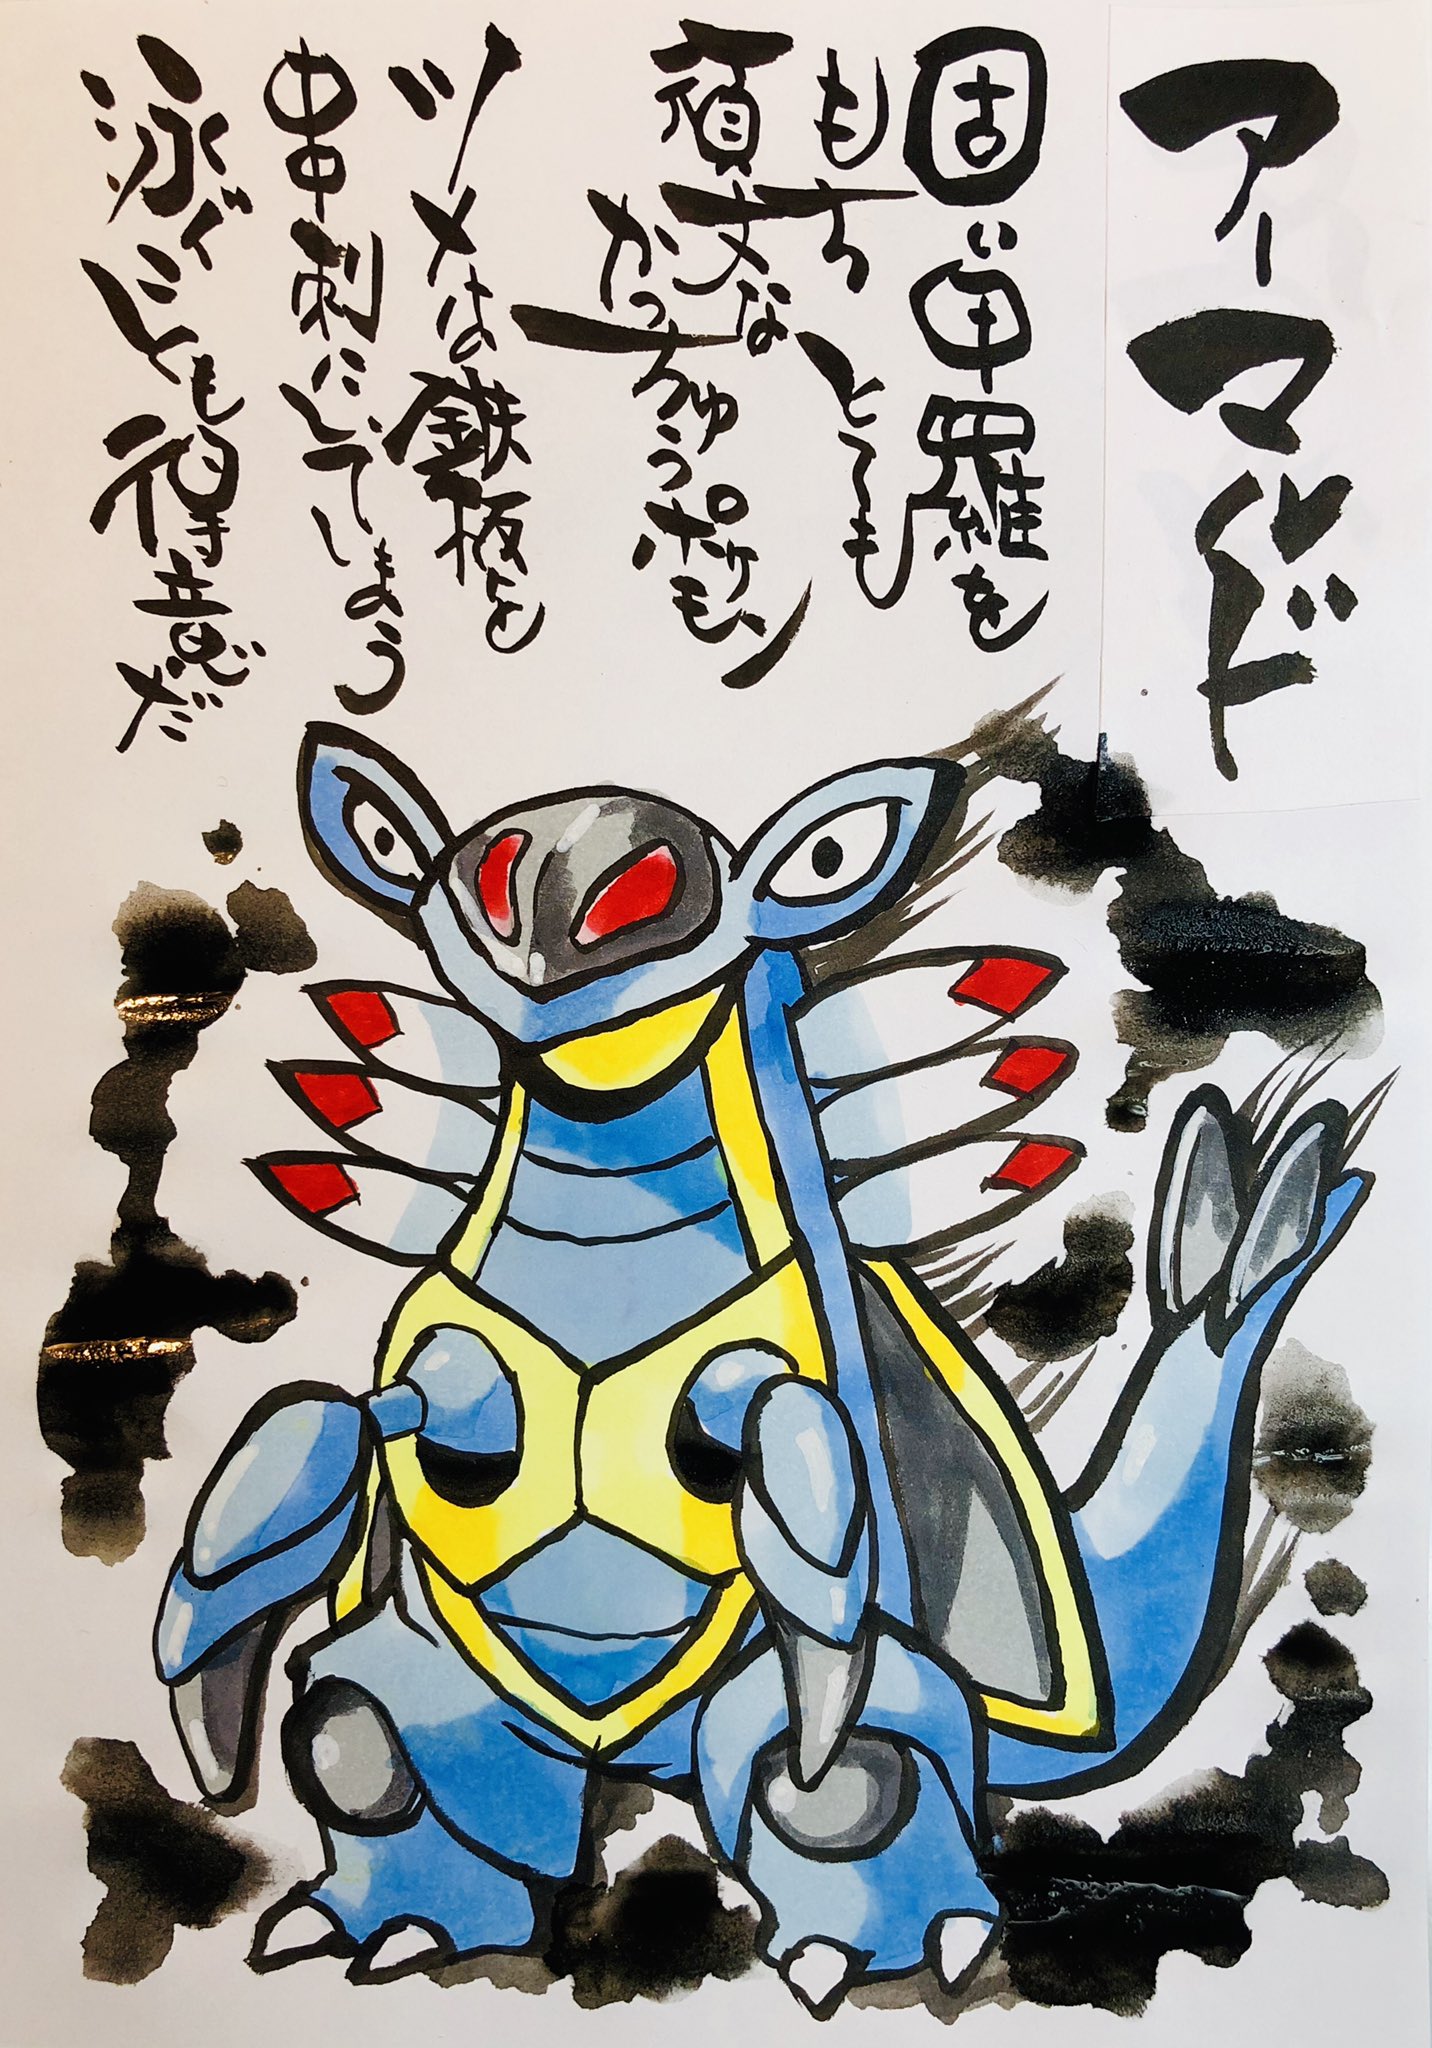 アーマルド
固い甲羅を
もちとても
頑丈な
かっちゅうポケモン
ツメは鉄板を
串刺にしてしまう
泳ぐことも得意だ